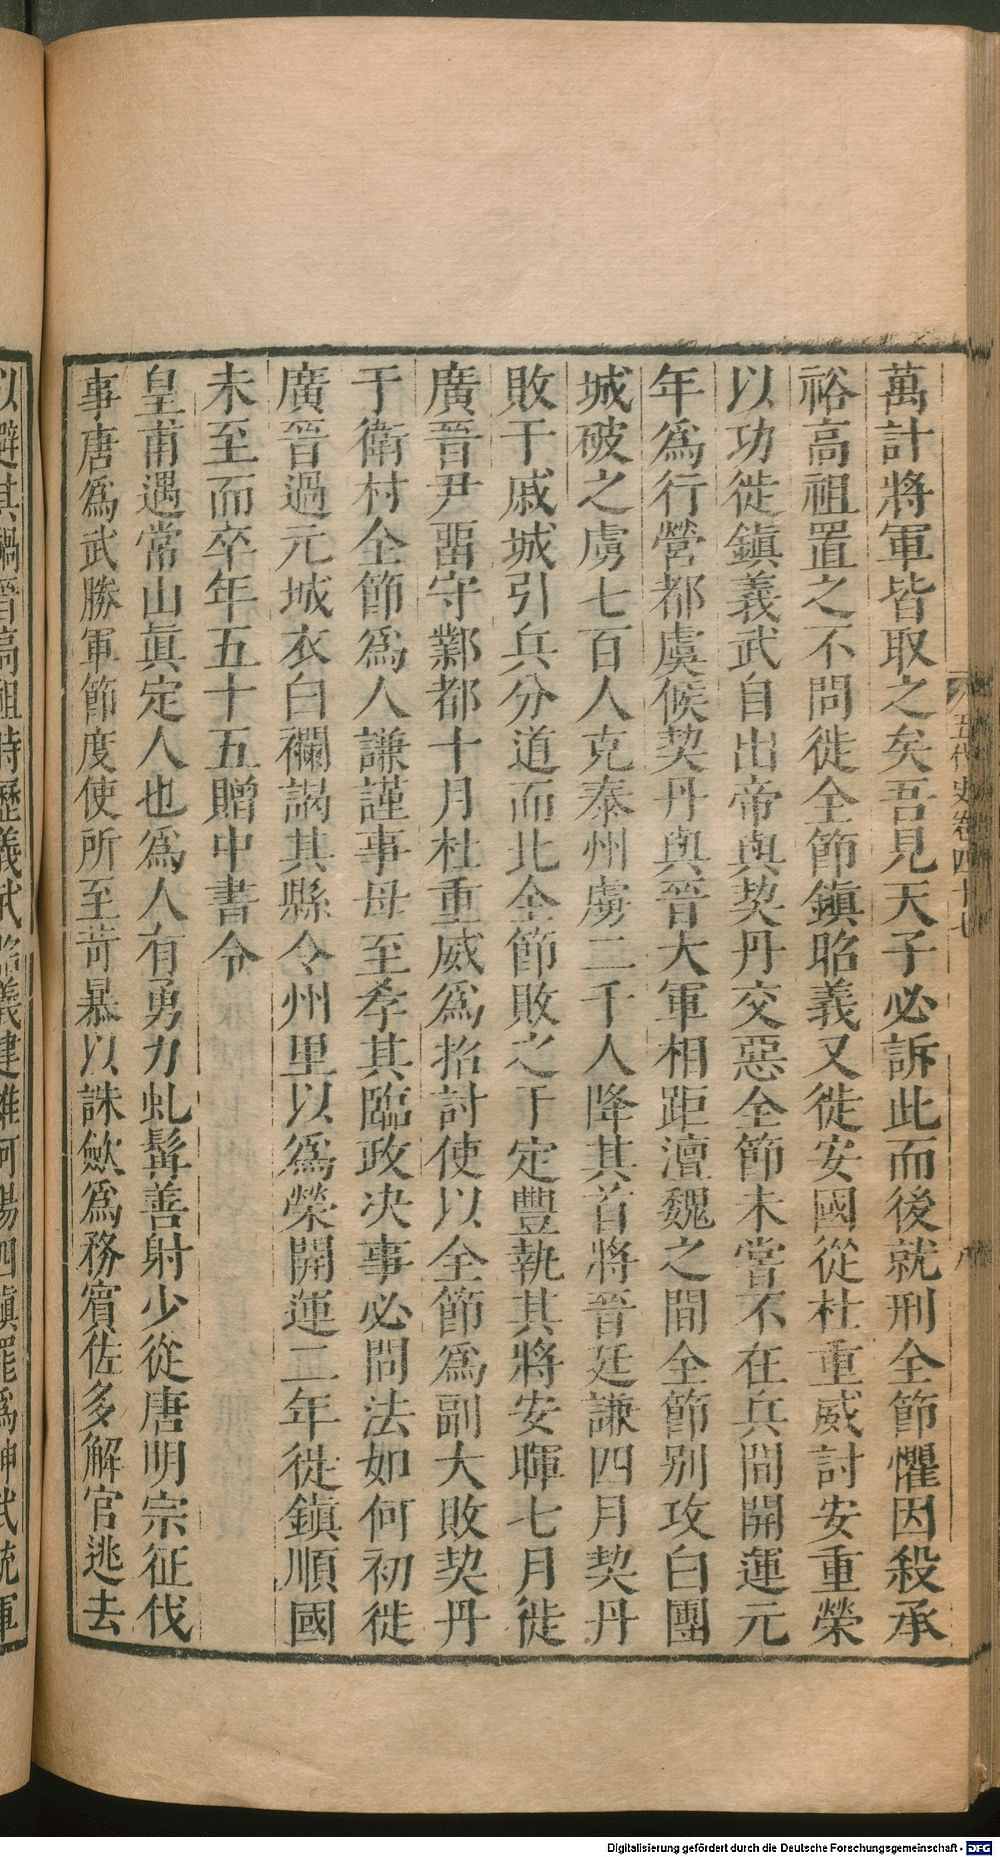 萬計將軍皆取之矣吾見天子必訴此而後就刑全節懼因殺承
裕高祖置之不問徙全節鎮昭義又徙安國從杜重威討安重榮
以功徙鎮義武自出帝與契丹交惡全節未嘗不在兵間開運元
年爲行營都虞候契丹與晉大軍相距澶魏之間全節别攻白團
城破之虜七百人克泰州虜二千人降其首將晉廷謙四月契丹
敗于戚城引兵分道而北全節敗之于定豐執其將安暉七月徙
廣晉尹畱守鄴都十月杜重威爲招討使以全節爲副大敗契丹
于衛村全節爲人謙謹事母至孝其臨政决事必問法如何初徙
廣晉過元城衣白襴謁其縣令州里以爲榮開運二年徙鎮順國
未至而卒年五十五贈中書令
皇甫遇常山眞定人也爲人有勇力虬髯善射少從唐明宗征伐
事唐爲武勝軍節度使所至苛暴以誅歛爲務賓佐多解官逃去
以避其禍晉高祖時歷義武昭義建雄河陽四鎮罷爲神武統軍
五代史卷四十七
八
Digitalisierung gefördert durch die Deutsche Forschungsgemeinschaft - DFG